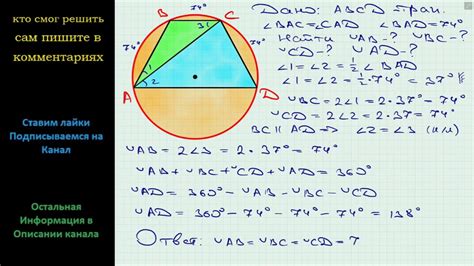 кто смог решить
сам пишите в
комментариях
Ставим лайки
Подписываемся на
Канал
Остальная
Информация в
Описании канала
74°
B
C
74°
74°
3
1
2
A
D
Дано: ABCD – трап.
∠BAC = ∠CAD ∠BAD = 74°
Найти ◡AB - ? ◡BC - ?
◡CD - ? ◡AD - ?
∠1 = ∠2 = 1/2 ∠BAD
∠1 = ∠2 = 1/2 · 74° = 37°
◡BC = 2∠1 = 2·37° = 74°
◡CD = 2∠2 = 2·37° = 74°
BC || AD ⇒ ∠2 = ∠3
◡AB = 2∠3 = 2·37° = 74°
◡AB + ◡BC + ◡CD + ◡AD = 360°
◡AD = 360° - ◡AB - ◡BC - ◡CD
◡AD = 360° - 74° - 74° - 74° = 138°
Ответ: ◡AB = ◡BC = ◡CD = 7